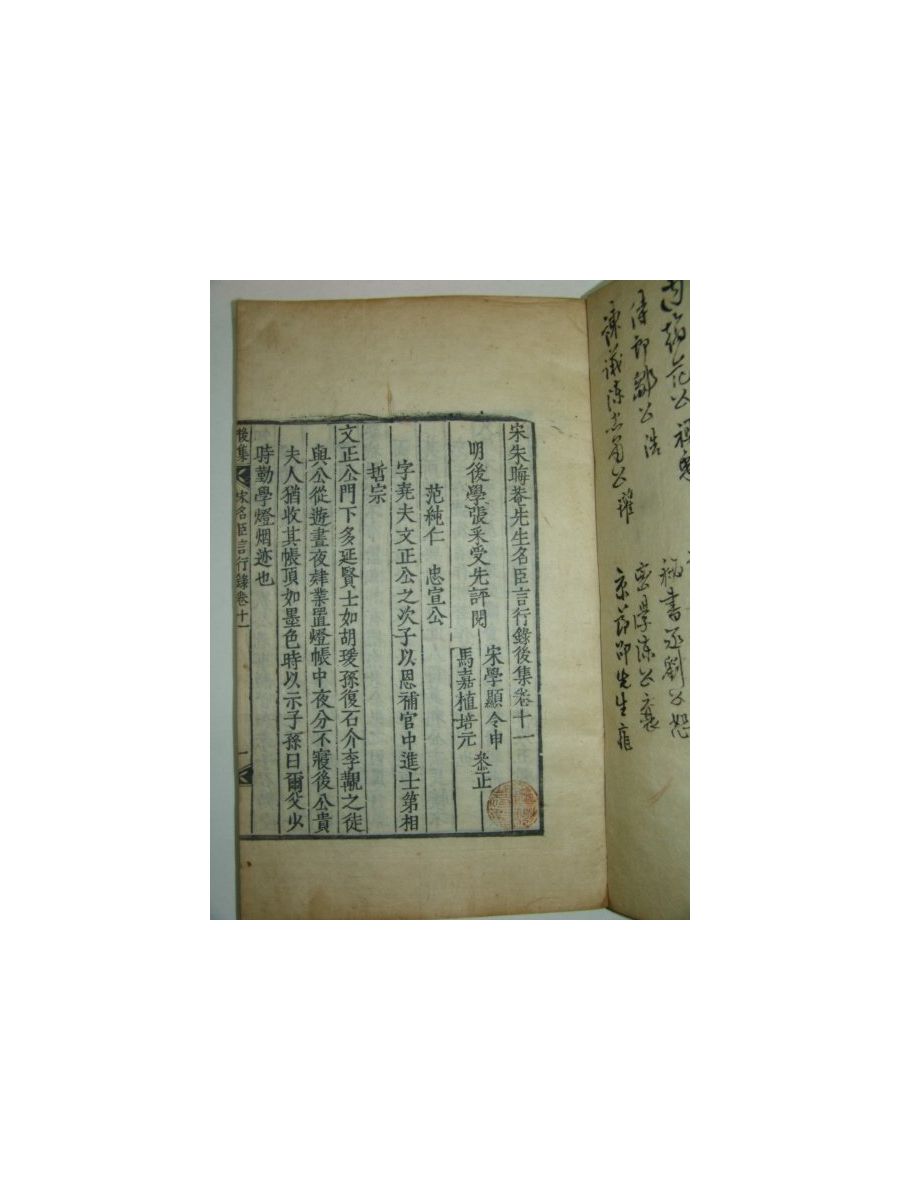 侍郎鄒公浩
秘書丞劉公恕
諫議陳忠肅公瓘
密學陳公襄
京節邵先生雍
宋朱晦菴先生名臣言行錄後集卷十一
明後學張采受先評閱
宋學顯令申
馬嘉植培元
叅正
范純仁 忠宣公
字堯夫文正公之次子以恩補官中進士第相
哲宗
文正公門下多延賢士如胡瑗孫復石介李覯之徒
與公從遊晝夜肄業置燈帳中夜分不寢後公貴
夫人猶收其帳頂如墨色時以示子孫曰爾父少
時勤學燈烟迹也
後集 宋名臣言行錄卷十一 一